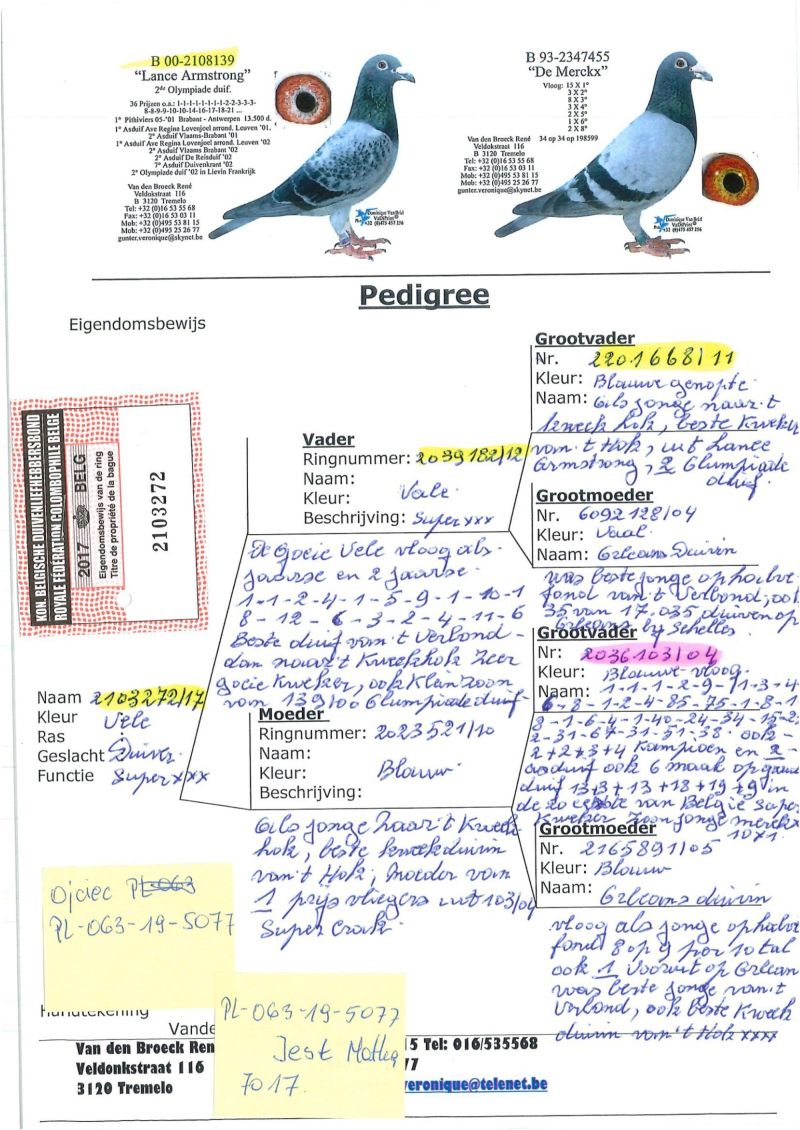 B 00-2108139
“Lance Armstrong”
2de Olympiade duif.
36 Prijzen o.a.: 1-1-1-1-1-1-1-2-2-3-3-3-
8-8-9-9-10-10-14-16-17-18-21 ...
1e Pithiviers 05-'01 Brabant - Antwerpen 13.500 d.
1e Asduif Ave Regina Lovenjoel arrond. Leuven '01.
2e Asduif Vlaams-Brabant '01
1e Asduif Ave Regina Lovenjoel arrond. Leuven '02
2e Asduif Vlaams Brabant '02
2e Asduif De Reisduif '02
Asduif Duivenkrant '02
2e Olympiade duif '02 in Lievin Frankrijk
Van den Broeck René
Veldokstraat 116
B 3120 Tremelo
Tel: +32 (0)16 53 55 68
Fax: +32 (0)16 53 03 11
Mob: +32 (0)495 53 81 15
Mob: +32 (0)495 25 26 77
gunter.veronique@skynet.be
B 93-2347455
“De Merckx”
Vloog: 15 X 1e
3 X 2e
8 X 3e
4 X 4e
2 X 5e
1 X 6e
2 X 8e
34 op 34 op 198599
Van den Broeck René
Veldokstraat 116
B 3120 Tremelo
Tel: +32 (0)16 53 55 68
Fax: +32 (0)16 53 03 11
Mob: +32 (0)495 53 81 15
Mob: +32 (0)495 25 26 77
gunter.veronique@skynet.be
Pedigree
Eigendomsbewijs
KON. BELGISCHE DUIVENLIEFHEBBERSBOND
ROYALE FÉDÉRATION COLOMBOPHILE BELGE
2017 BELG
Eigendomsbewijs van de ring
Titre de propriété de la bague
2103272
Naam 2103272/17
Kleur Vele
Ras
Geslacht Duiver
Functie Super xxx
Vader
Ringnummer: 2039182/12
Naam:
Kleur: Vale
Beschrijving: Super xxx
De Goeie Vele vloog als
jaarse en 2 jaarse
1-1-2-4-1-5-9-1-10-1
8-12-6-3-2-4-11-6
Beste duif van't Verbond
dan naar't Kweekhok Zeer
goeie Kweker, ook Kleinzoon
van 139/00 Olumpiade duif
Moeder
Ringnummer: 2023521/10
Naam:
Kleur: Blauw
Beschrijving:
Als jonge naar't Kweek
hok, beste kweekduivin
van't Hok, moeder van
1 prijs vliegers uit 103/04
Super Crack
Grootvader
Nr. 2201668/11
Kleur: Blauwe genopte
Naam: Als jonge naar't
kweek hok, beste Kweker
van't Hok, uit Lance
Armstrong, 2 Olumpiade
duif
Grootmoeder
Nr. 6092128/04
Kleur: Vaal
Naam: Orleans Duiven
was beste jonge op halve
fond van't Verbond, ook
35 van 17.035 duiven op
Orleans by Schellens
Grootvader
Nr: 2036103/04
Kleur: Blauwe vloog
Naam: 1-1-1-2-9-/1-3-4
6-8-1-2-4-85-75-1-8-1
8-1-6-4-1-40-24-34-15-22
2-31-67-31-51-38 ook
2+2+3+4 Kampioen en 2
asduif ook 6 maal op
duif 13+3+13+18+19+9 in
de 20 eerste van België Super
Kweker Zoon jonge merckx
10x1
Grootmoeder
Nr. 2165891/05
Kleur: Blauw
Naam: Orleans duivin
vloog als jonge op halve
fond 8 op 9 per 10 tal
ook 1 vooruit op Orlean
was beste jonge van't
Verbond, ook beste Kweek
duivin van't Hok xxxx
Ojciec PL-063
PL-063-19-5077
PL-063-19-5077
Jest Matką
7017.
Handtekening
Vande
Van den Broeck Ren
15 Tel: 016/535568
Veldonkstraat 116
77
3120 Tremelo
veronique@telenet.be